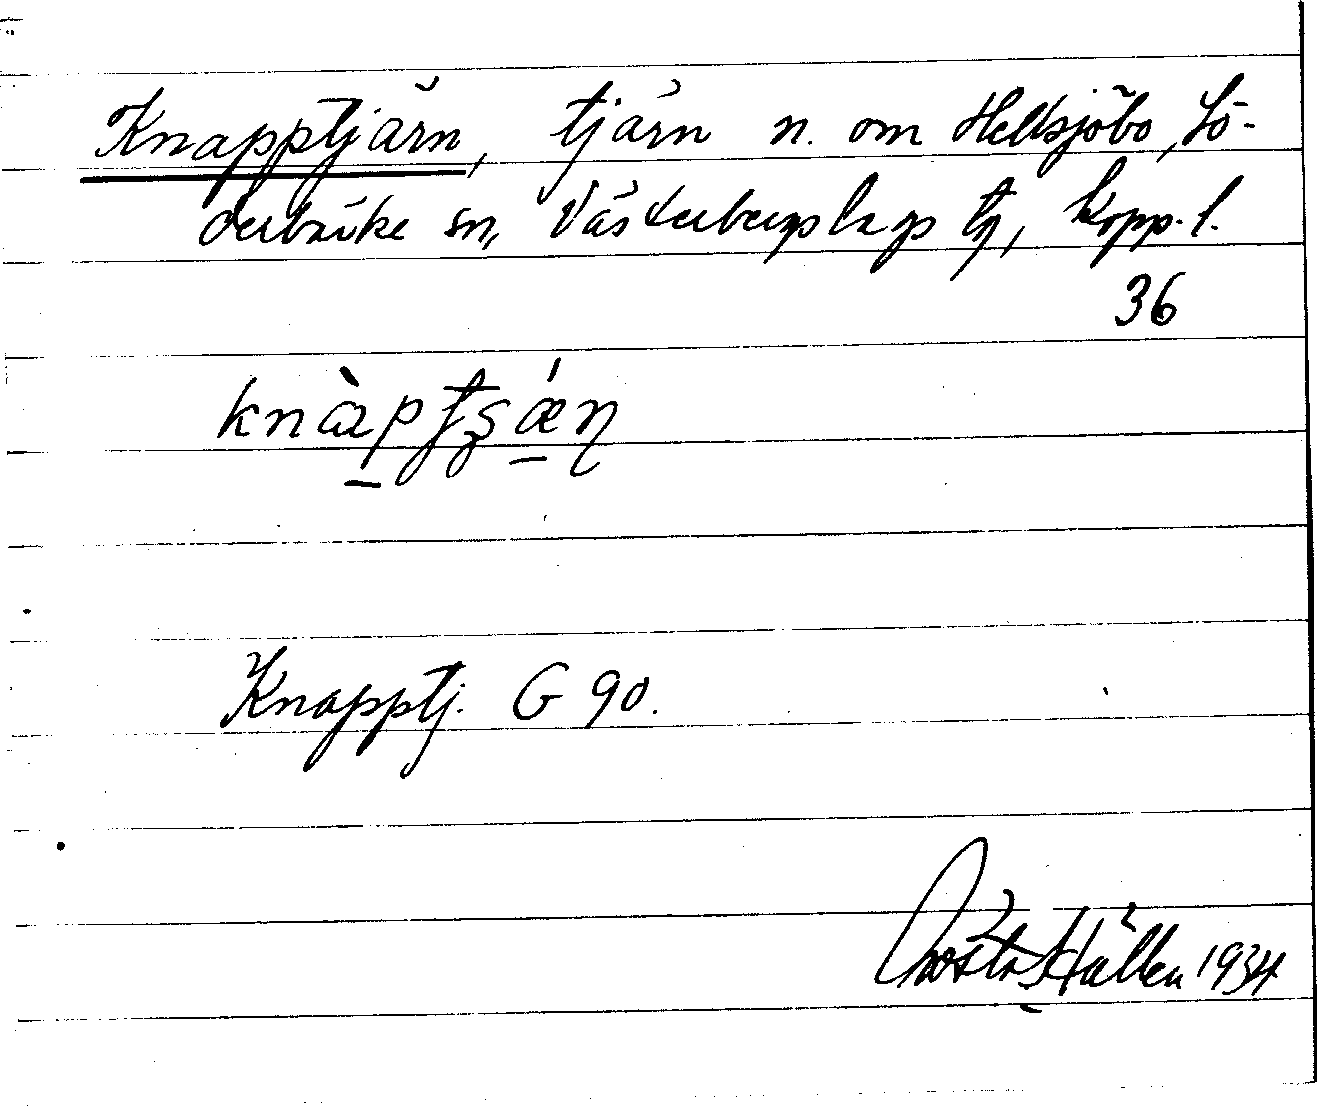 Knapptjärn, tjärn n. om Hellsjöbo, Sö-
derbärke sn, Västerbergslags tg, Kopp. l.
36
Knapptj. G 90.
Gösta Hållen 1934